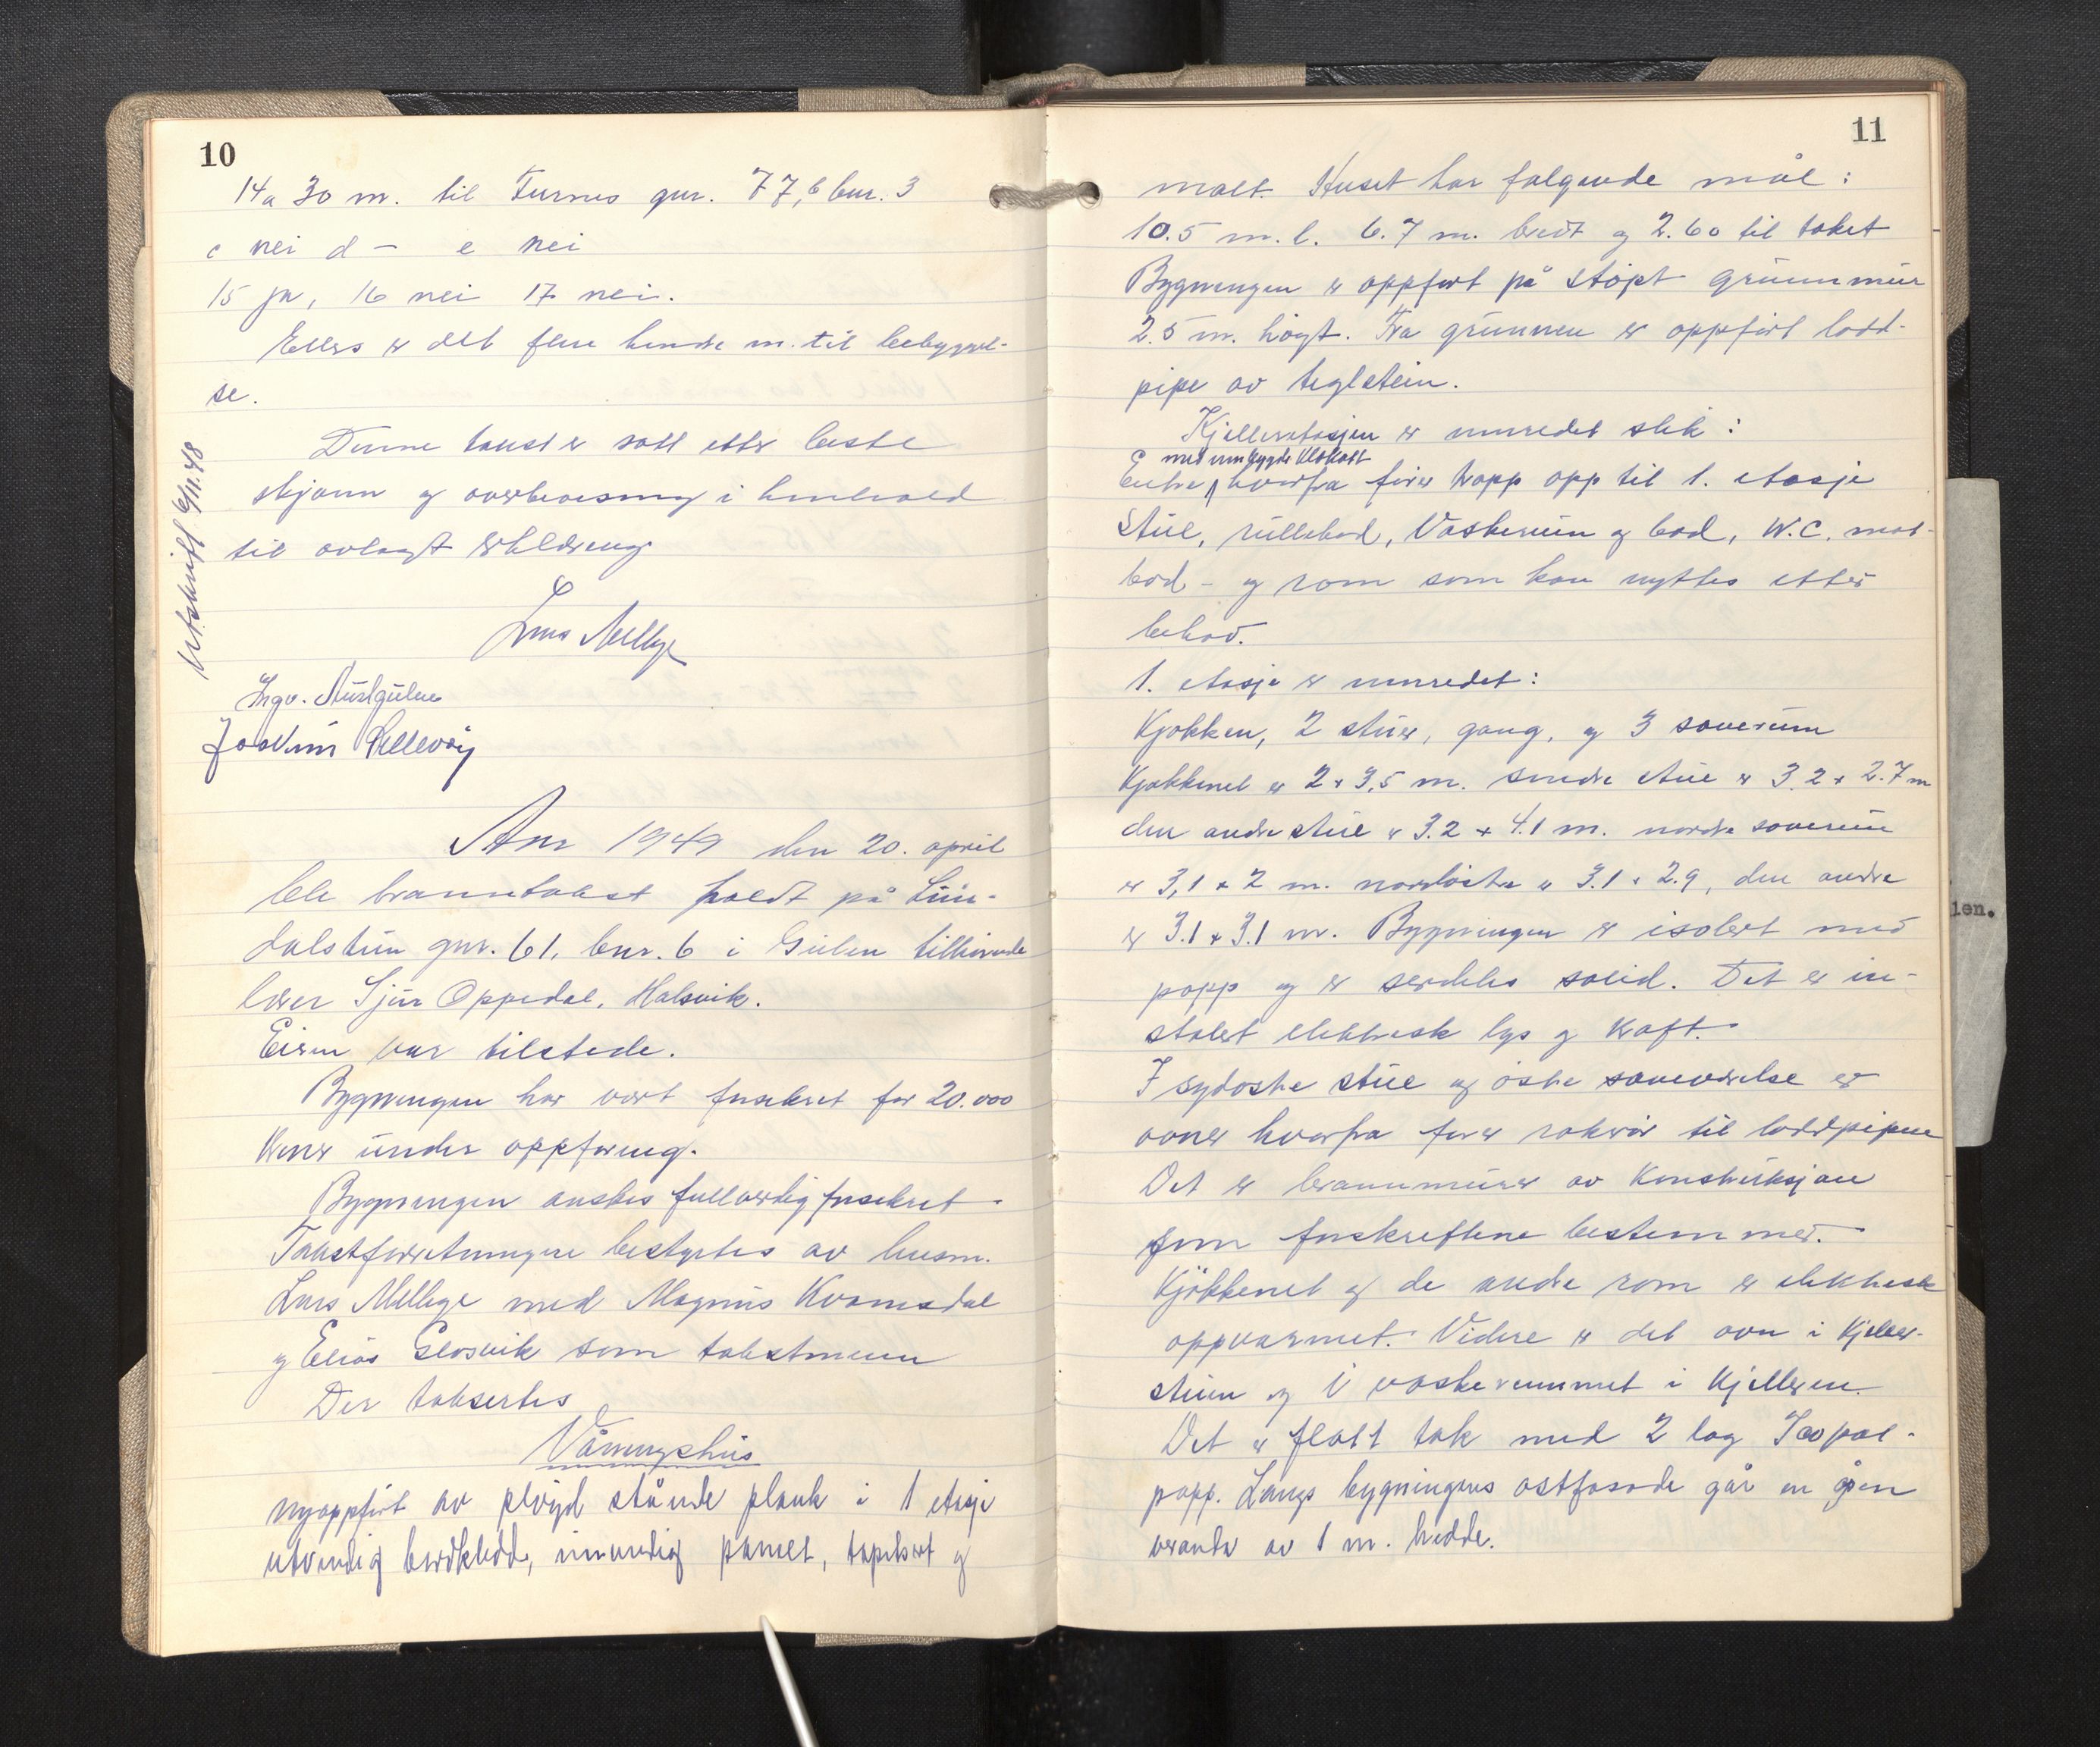 10
14a 30 m. til Furnes gnr. 77, b bnr. 3
c nei d - e nei
15 ja, 16 nei 17 nei.
Ellers er det flere hundre m. til bebyggel-
se.
Denne takst er satt etter beste
skjønn og overbevisning i henhold
til avlagt erklæring
Lars Mellbye
Ingv. Austgulen
Joakim Sellevåg
Utskrift 6/11.48
Anr 1949 den 20. april
ble branntakst holdt på Lun-
dalstun gnr. 61, bnr. 6 i Gulen tilhørende
lærer Sjur Oppedal, Halsvik.
Eieren var tilstede.
Bygningen har vært forsikret for 20.000
kroner under oppføring.
Bygningen ønskes fullverdig forsikret.
Takstforretningen bestyrtes av lensm.
Lars Mellbye med Magnus Kvamsdal
og Elias Glosvik som takstmenn
Der taksertes
Våningshus
nyoppført av pløyd stående plank i 1 etasje
utvendig bordkledd, innvendig panelt, tapetsert og
11
malt. Huset har følgende mål:
10.5 m. l. 6.7 m. bredt og 2.60 til taket
Bygningen er oppført på støpt grunnmur
2.5 m. høgt. Fra grunnen er oppført lodd-
pipe av teglstein.
Kjelleretasjen er innredet slik:
med innbygde klokott
Entre hvorfra fører trapp opp til 1. etasje
Stue, rullebod, Vaskerum og bad, W.C. mat-
bod - og rom som kan nyttes etter
behov.
1. etasje er innredet:
Kjøkken, 2 stuer, gang, og 3 soverum
Kjøkkenet er 2 x 3,5 m. søndre stue er 3.2 x 2.7 m
den andre stue er 3.2 x 4.1 m. nordre soverum
er 3,1 x 2 m. nordøstre er 3.1 x 2.9, den andre
er 3.1 x 3.1 m. Bygningen er isolert med
papp og er særdeles solid. Det er in-
stalert elektrisk lys og kraft.
I sydøstre stue og østre soveværelse er
ovner hvorfra fører rakrør til loddpipene
Det er brannmurer av Konstruksjon
som forskreftene bestemmer.
Kjøkkenet og de andre rom er elektrisk
oppvarmet. Videre er det ovn i Kjeller-
stuen og i vaskerummet i Kjelleren.
Det er flatt tak med 2 lag Icopal-
papp. Langs bygningens østfasade går en åpen
veranda av 1 m. bredde.
len.